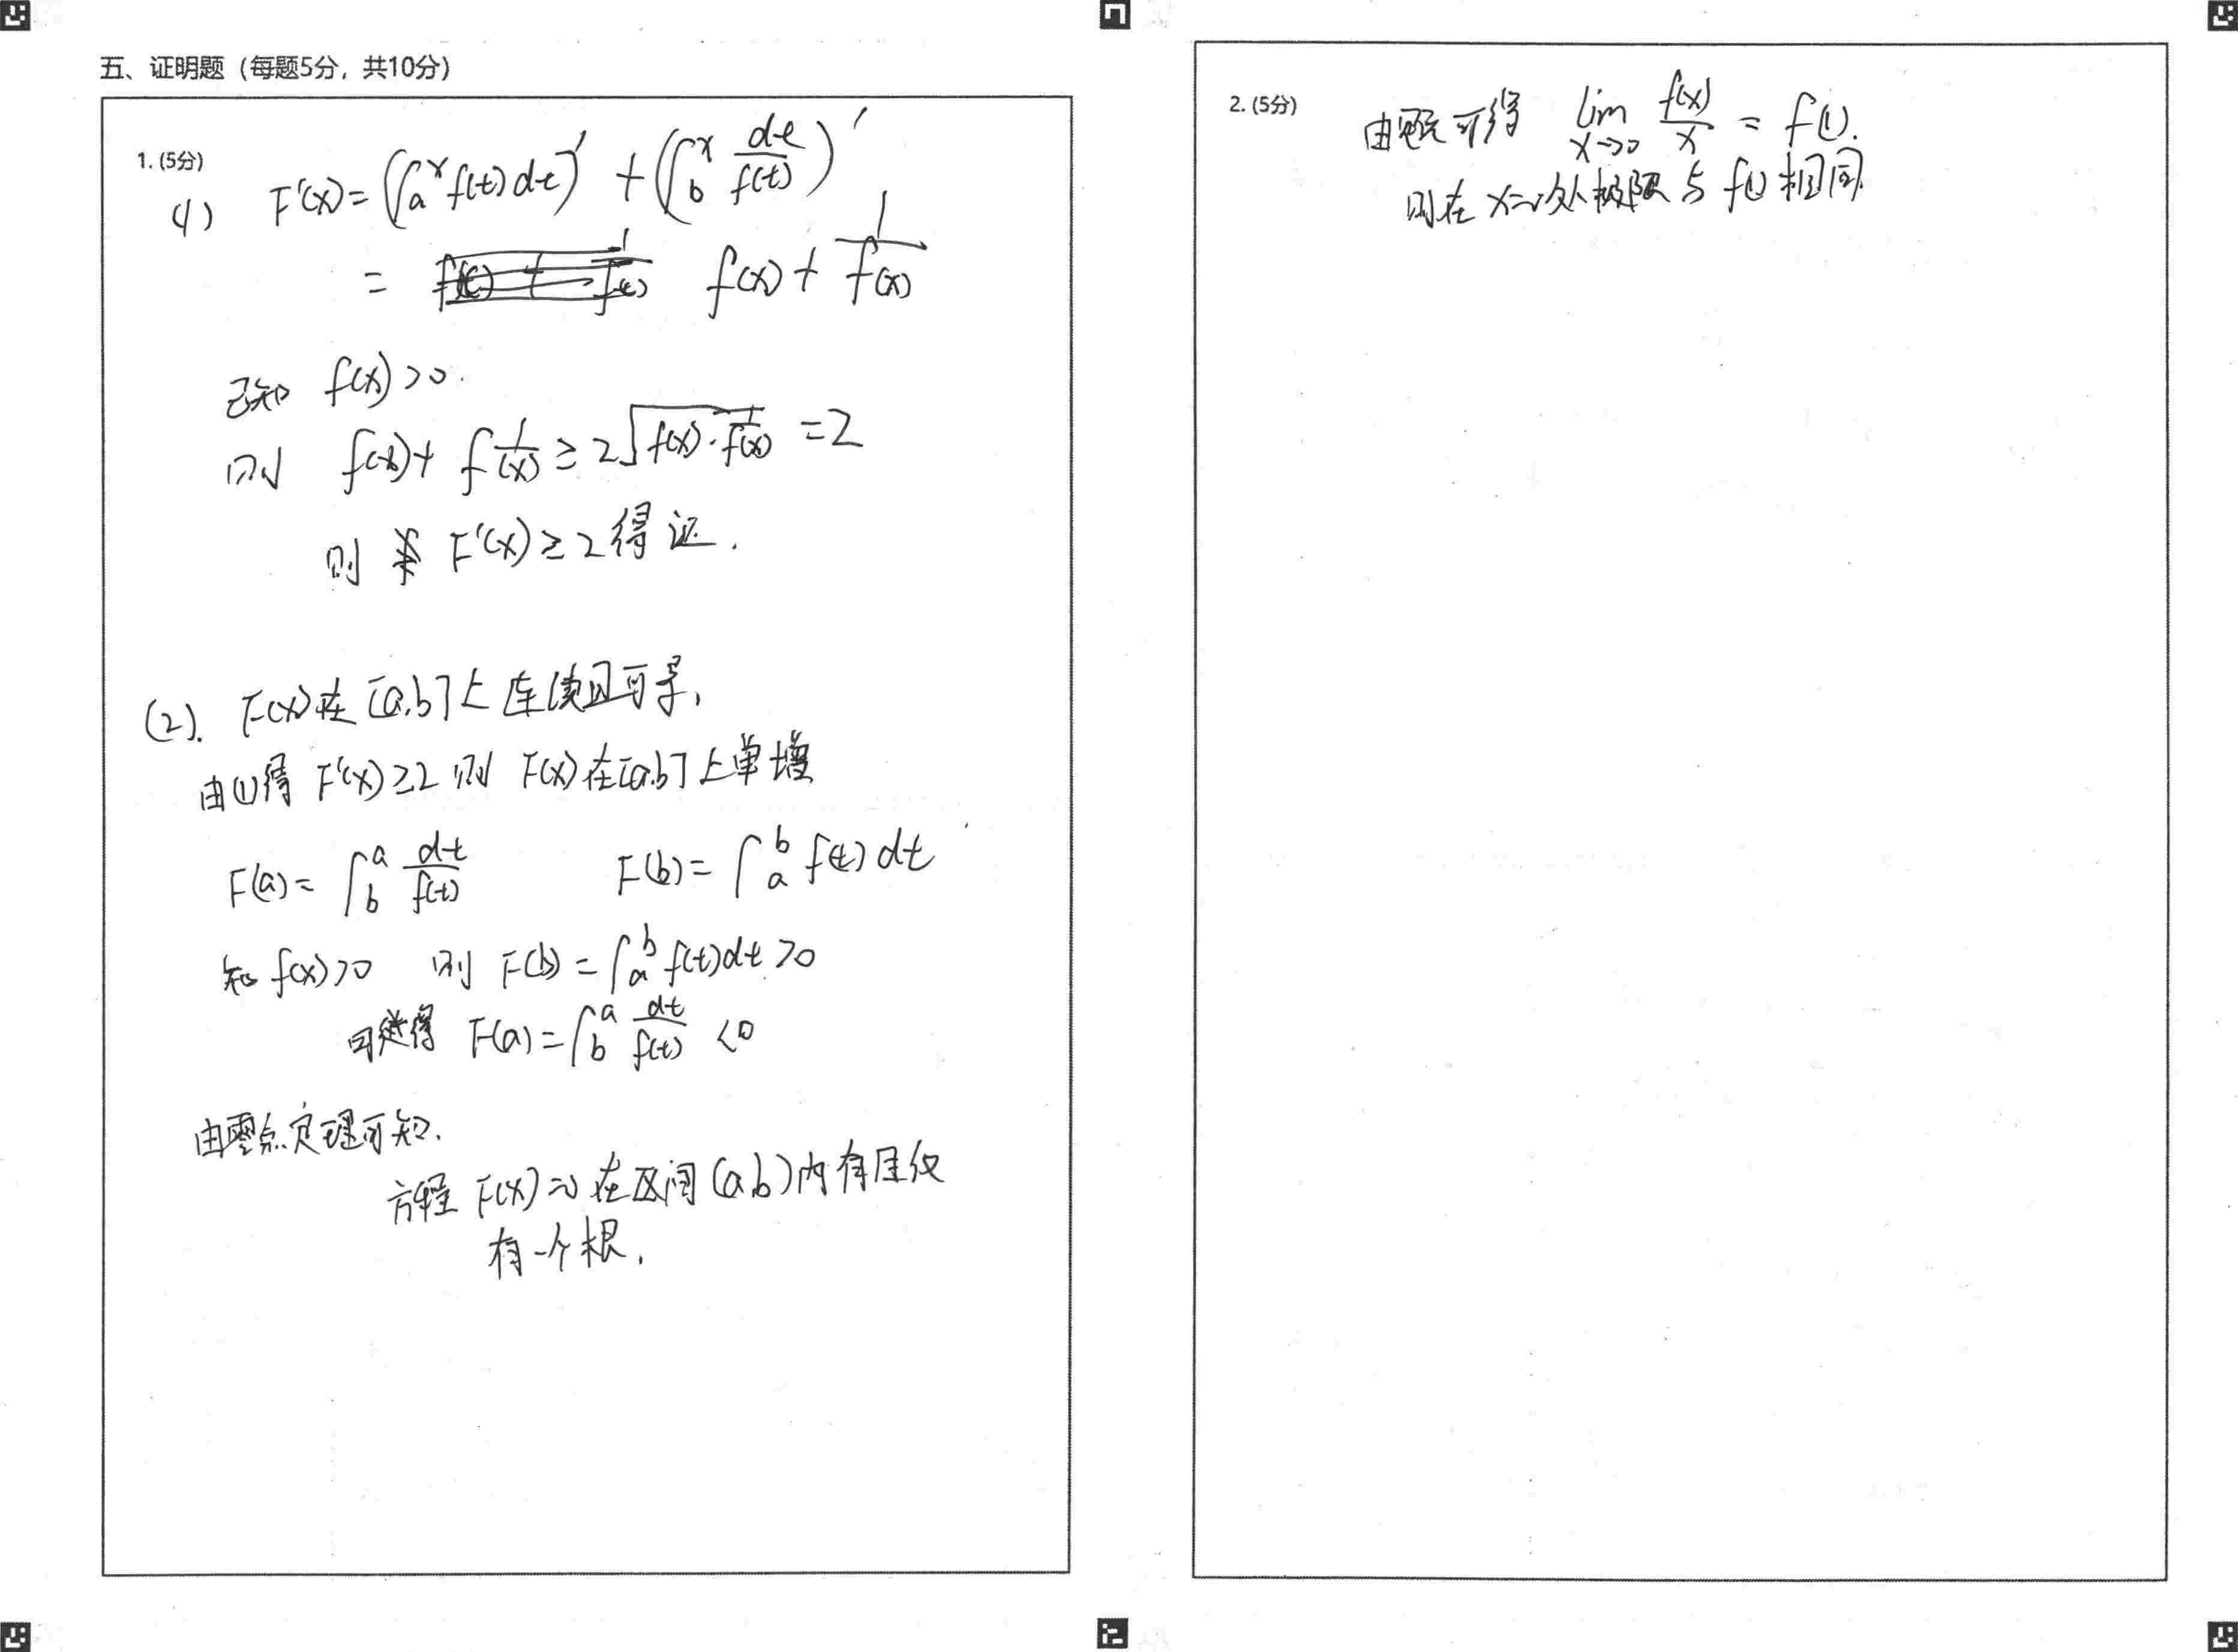 五、证明题（每题5分，共10分）
1. (5分)
(1) F'(x) = (∫_a^x f(t) dt)' + (∫_b^x dt/f(t))'
= f(x) + 1/f(x)
已知 f(x) > 0.
则 f(x) + 1/f(x) ≥ 2√(f(x)·1/f(x)) = 2
则 F'(x) ≥ 2 得证.
(2). F(x) 在 [a,b] 上连续且可导,
由(1)得 F'(x) ≥ 2 则 F(x) 在 [a,b] 上单增
F(a) = ∫_b^a dt/f(t) F(b) = ∫_a^b f(t) dt
知 f(x) > 0 则 F(b) = ∫_a^b f(t) dt > 0
得 F(a) = ∫_b^a dt/f(t) < 0
由零点定理可知.
方程 F(x) = 0 在区间 (a,b) 内有且仅
有一个根.
2. (5分)
由 可得 lim_{x→0} f(x)/x = f(1).
则在 x=0处极限与 f(1) 相同.